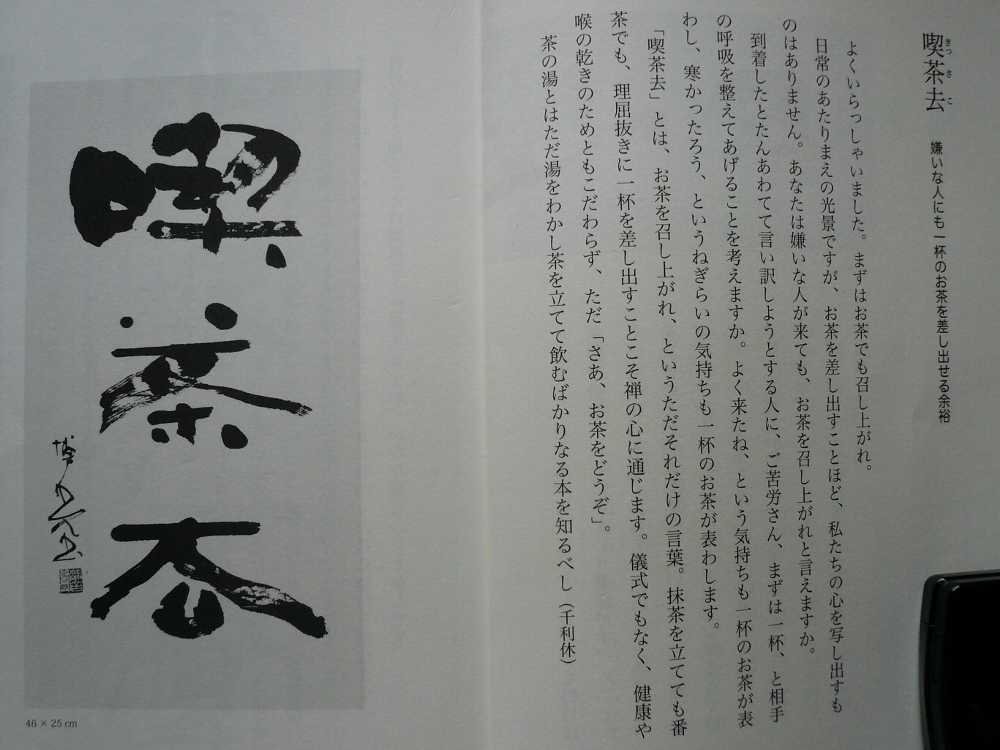 喫茶去
きっさこ
嫌いな人にも一杯のお茶を差し出せる余裕
よくいらっしゃいました。まずはお茶でも召し上がれ。
日常のあたりまえの光景ですが、お茶を差し出すことほど、私たちの心を写し出すも
のはありません。あなたは嫌いな人が来ても、お茶を召し上がれと言えますか。
到着したとたんあわてて言い訳しようとする人に、ご苦労さん、まずは一杯、と相手
の呼吸を整えてあげることを考えますか。よく来たね、という気持ちも一杯のお茶が表
わし、寒かったろう、というねぎらいの気持ちも一杯のお茶が表わします。
「喫茶去」とは、お茶を召し上がれ、というただそれだけの言葉。抹茶を立てても番
茶でも、理屈抜きに一杯を差し出すことこそ禅の心に通じます。儀式でもなく、健康や
喉の乾きのためともこだわらず、ただ「さあ、お茶をどうぞ」。
茶の湯とはただ湯をわかし茶を立てて飲むばかりなる本を知るべし（千利休）
喫
茶
去
46 × 25 cm